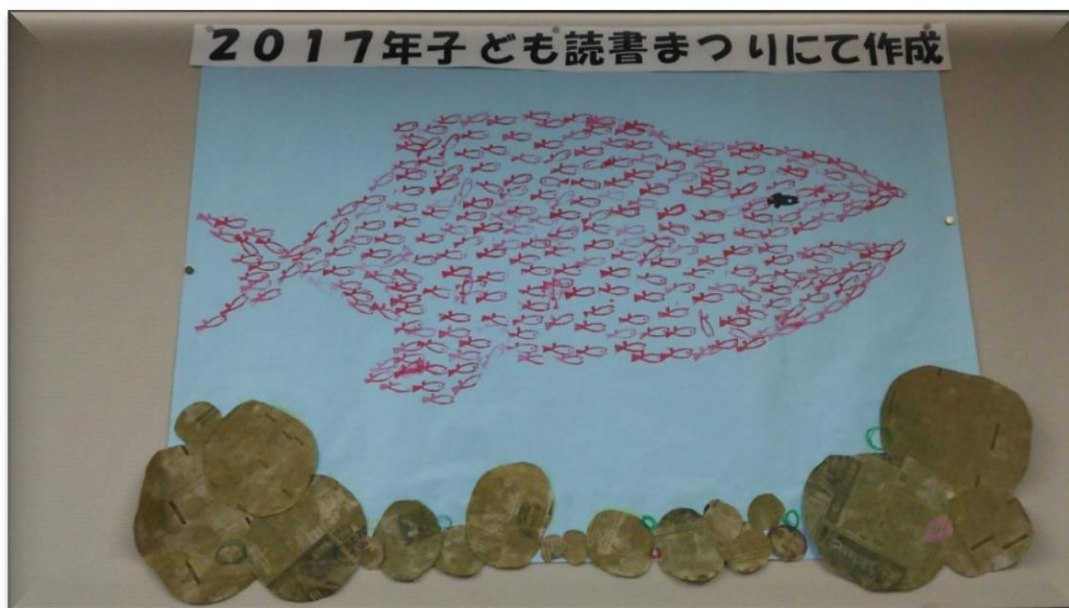 2017年子ども読書まつりにて作成